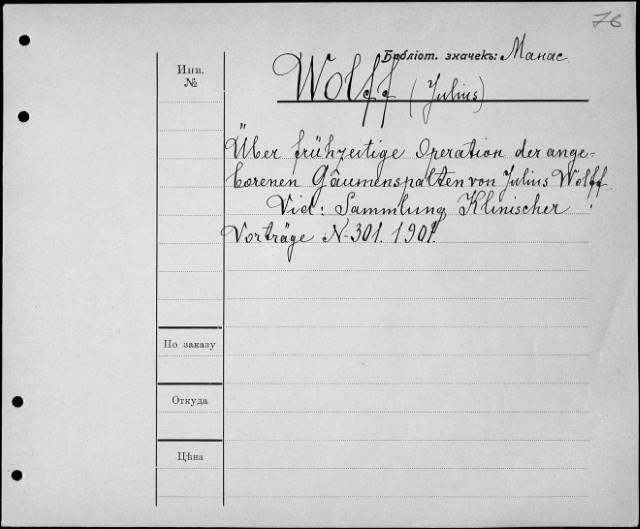 76
Библіот. значекъ: Манас.
Инв.
№
Wolff (Julius)
Über frühzeitige Operation der ange-
borenen Gaumenspalten von Julius Wolff.
Vid: Sammlung Klinischer
Vorträge N-301. 1901.
По заказу
Откуда
Цѣна